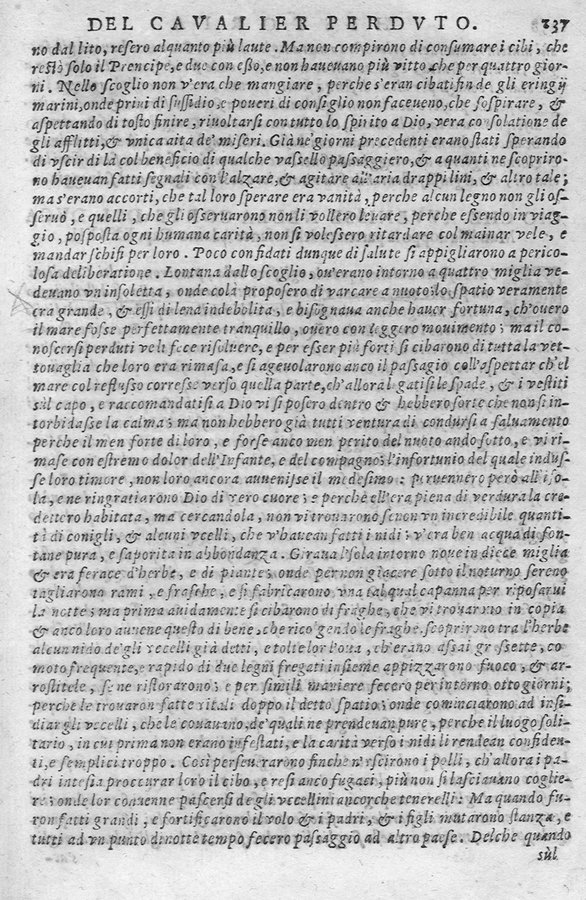 DEL CAVALIER PERDVTO. 237
no dal lito, resero alquanto più laute. Ma non compirono di consumare i cibi, che
restò solo il Prencipe, e due con esso, e non haueuano più vitto che per quattro gior-
ni. Nello scoglio non v'era che mangiare, perche s'eran cibati fin de gli eringij
marini, onde priui di sussidio, e poueri di consiglio non faceueno, che sospirare, &
aspettando di tosto finire, riuoltarsi con tutto lo spirito a Dio, vera consolatione de
gli afflitti, & vnica aita de' miseri. Già ne' giorni precedenti erano stati sperando
di vscir di là col beneficio di qualche vassello passaggiero, & a quanti ne scopriro-
no haueuan fatti segnali con l'alzare, & agitare all'aria drappi lini, & altro tale;
ma s'erano accorti, che tal loro sperare era vanità, perche alcun legno non gli os-
seruò, e quelli, che gli osseruarono non li vollero leuare, perche essendo in viag-
gio, posposta ogni humana carità, non si volessero ritardare col mainar vele, e
mandar schifi per loro. Poco confidati dunque di salute si appigliarono a perico-
losa deliberatione. Lontana dallo scoglio, ou'erano intorno a quattro miglia ve-
deuano vn'insoletta, onde colà proposero di varcare a nuoto: lo spatio veramente
era grande, & essi di lena indebolita, e bisognaua anche hauer fortuna, ch'ouero
il mare fosse perfettamente tranquillo, ouero con leggero mouimento; ma il co-
noscersi perduti veli fece risoluere, e per esser più forti si cibarono di tutta la vet-
touaglia che loro era rimasa, e si ageuolarono anco il passagio coll'aspettar ch'el
mare col reflusso corresse verso quella parte, ch'allora legatisi le spade, & i vestiti
sùl capo, e raccomandatisi a Dio vi si posero dentro & hebbero sorte che non si in-
torbidasse la calma; ma non hebbero già tutti ventura di condursi a saluamento
perche il men forte di loro, e forse anco men perito del nuoto andò sotto, e vi ri-
mase con estremo dolor dell'Infante, e del compagno; l'infortunio del quale indus-
se loro timore, non loro ancora auuenisse il medesimo: peruennero però all'iso-
la, e ne ringratiarono Dio di vero cuore; e perchè ell'era piena di verdura la cre-
dettero habitata, ma cercandola, non vi trouarono senon vn incredibile quanti-
tà di conigli, & alcuni vcelli, che v'haueuan fatti i nidi: v'era ben acqua di fon-
tane pura, e saporita in abbondanza. Giraua l'isola intorno noue in diece miglia
& era ferace d'herbe, e di piante; onde per non giacere sotto il noturno sereno
tagliarono rami, e frasche, e si fabricarono vna tal qual capanna per riposarui
la notte; ma prima auidamente si cibarono di fraghe, che vi trouarono in copia
& anco loro auuene questo di bene, che ricogendo le fraghe, scoprirono tra l'herbe
alcun nido de gli vccelli già detti, e tolte lor l'oua, ch'erano assai grossette, co
moto frequente, e rapido di due legni fregati insieme appizzarono fuoco, & ar-
rostitele, se ne ristorarono; e per simili maniere fecero per intorno otto giorni;
perche le trouaron fatte vitali doppo il detto spatio; onde cominciarono ad insi-
diar gli vccelli, che le couauano, de' quali ne prendeuan pure, perche il luogo soli-
tario, in cui prima non erano infestati, e la carità verso i nidi li rendean confiden-
ti, e semplici troppo. Così perseuerarono finche n'vscirono i polli, ch'allora i pa-
dri intesi a proccurar loro il cibo, e resi anco fugaci, più non si lasciauano coglie-
re; onde lor conuenne pascersi de gli vccellini ancorche tenerelli: Ma quando fu-
ron fatti grandi, e fortificarono il volo & i padri, & i figli mutarono stanza, e
tutti ad vn punto di notte tempo fecero passaggio ad altro paese. Delche quando
sùl